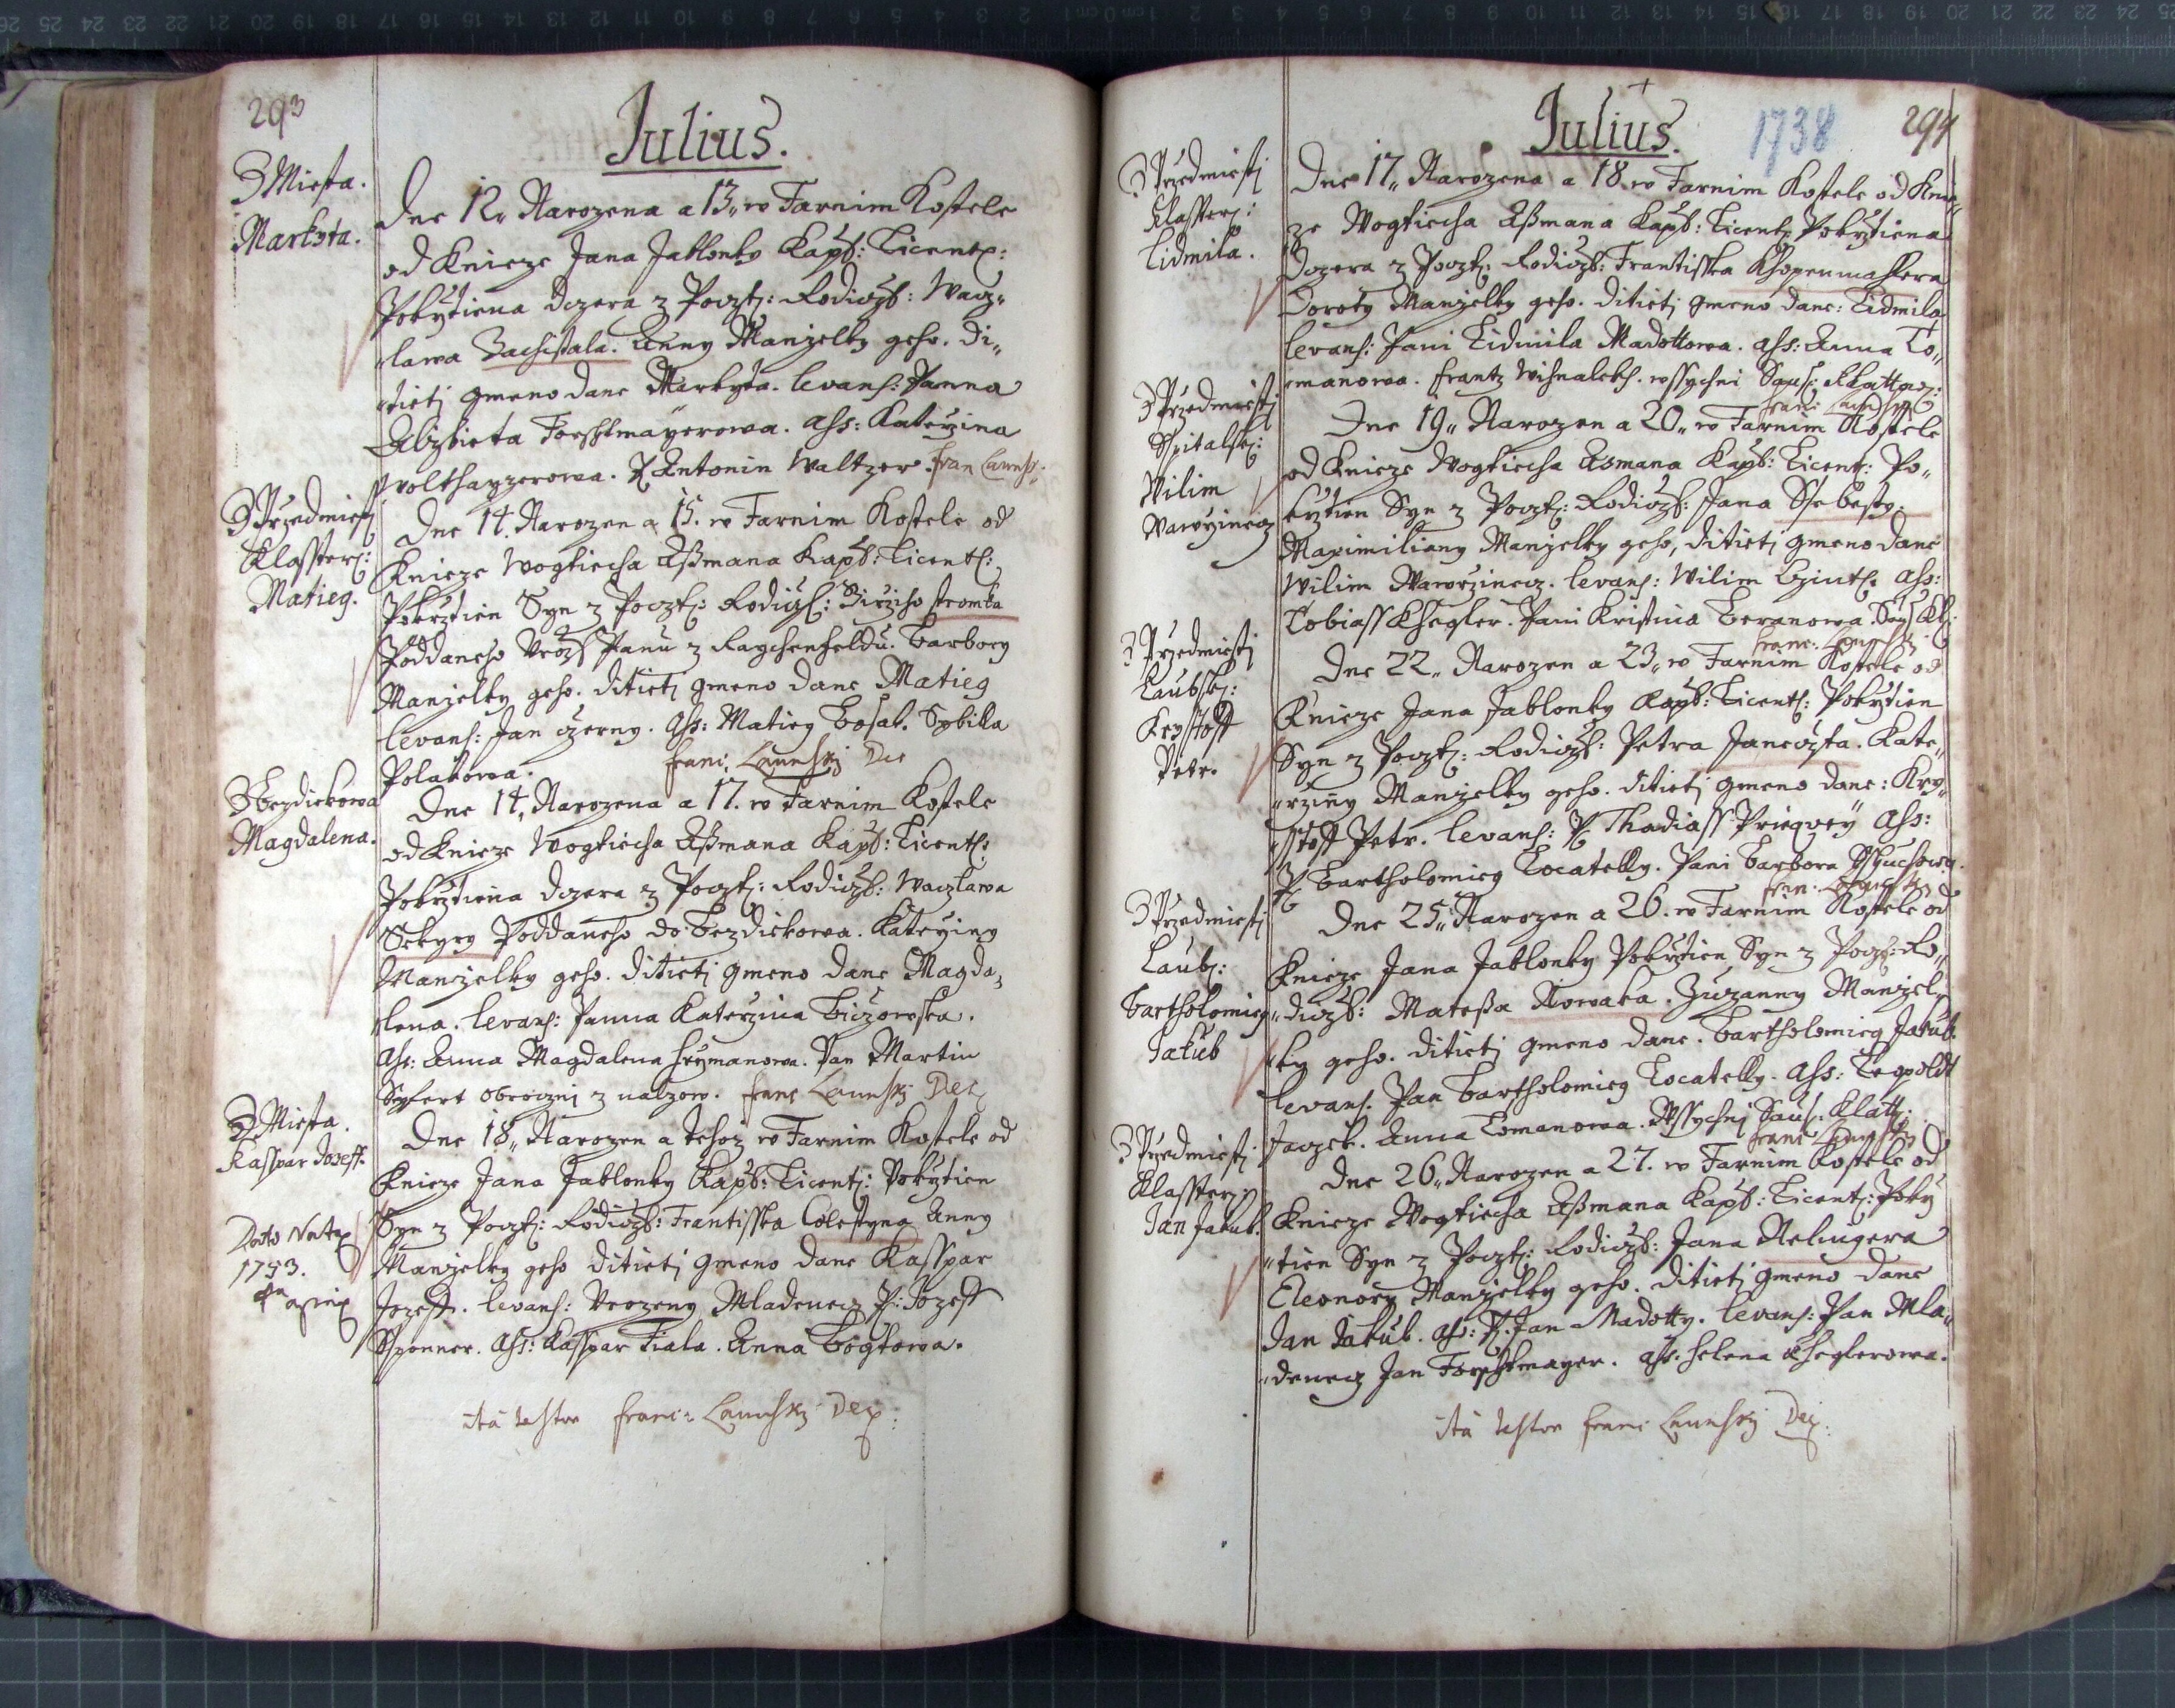 293
Julius.
Z Miesta.
Markyta.
Dne 12,, Narozena a 13,, w Farnim Kostele
od Knieze Jana Jablonky Kapł: Licent:
Pokrztiena Dczera z Poczt: Rodiczů: Wacz„
„lawa Anny Manzelky geho. Di„
„tieti gmeno dane Markyta. levans: Panna
Alzbieta Forchtmayerowa. ass: Katerzina
Antonin Waltzer.
Z Przedmiesti
Klasster:
Matieg.
Dne 14. Narozen a 15. w Farnim Kostele od
Knieze Wogtiecha Aßmana Kapł: Licent:
Pokrztien Syn z Poczt: Rodiczů: Girziho Stromka
Poddaneho Uroz: Panu z Raychenfeldu. Barbory
Manzelky geho. Ditieti gmeno dane Matieg
levans: Jan Czerny. ass: Matieg Sybilla
Polakowa.
Z Bezdiekowa
Magdalena.
Dne 14, Narozena a 17. w Farnim Kostele
od Knieze Wogtiecha Aßmana Kapł: Licent:
Pokrztiena Dczera z Poczt: Rodiczů: Waczlawa
Sekyry Poddaneho do Bezdiekowa. Katerziny
Manzelky geho. Ditieti gmeno dane Magda„
„lena. levans: Panna Katerzina
ass: Anna Magdalena Heymanowa. Pan Martin
Syfert obrocznj z
Z Miesta.
Kasspar Jozeff.
1753.
Dne 18,, Narozen a tehoz w Farnim Kostele od
Knieze Jana Jablonky Kapł: Licent: Pokrztien
Syn z Poczt: Rodiczů: Frantisska Anny
Manzelky geho Ditieti gmeno dane Kasspar
Jozeff. levans: Urozeny Mladenecz P: Jozeff
Ssponner. ass: Kasspar Fiala. Anna
ita testor Franc: Dec:
Julius.
1738
294
Z Przedmiesti
Klasster:
Lidmila.
Dne 17,, Narozena a 18. w Farnim Kostele od Knie„
ze Wogtiecha Aßmana Kapł: Licent: Pokrztiena
Dczera z Poczt: Rodiczů: Frantisska
Doroty Manzelky geho. Ditieti gmeno dane: Lidmila
levans: Pani Lidmila Madottowa. ass: Anna To„
„manowa. Frantz wssychni
Z Przedmiesti
Spitalsk:
Wilim
Wawrzinecz
Dne 19,, Narozen a 20,, w Farnim Kostele
od Knieze Wogtiecha Asmana Kapł: Licent: Po„
krztien Syn z Poczt: Rodiczů: Jana
Maximiliany Manzelky geho, Ditieti gmeno dane
Wilim Wawrzinecz. levans: Wilim ass:
Tobiass Khegler. Pani Kristina Beranowa.
Z Przedmiesti
Laubsk:
Krysstoff
Petr.
Dne 22,, Narozen a 23,, w Farnim Kostele od
Knieze Jana Jablonky Kapł: Licent: Pokrztien
Syn z Poczt: Rodiczů: Petra Janczysta. Kate„
„rziny Manzelky geho. Ditieti gmeno dane: Kry„
„sstoff Petr. levans: P. Thadiass ass:
P. Bartholomieg Locatelly. Pani Barbora
Z Przedmiesti
Laub:
Bartholomieg
Jakub
Dne 25,, Narozen a 26. w Farnim Kostele od
Knieze Jana Jablonky Pokrztien Syn z Poczt: Ro„
„diczů: Mateßa Nowaka. Zuzanny Manzel„
„ky geho. Ditieti gmeno dane. Bartholomieg Jakub.
levans: Pan Bartholomieg Locatelly. ass: Leopoldt
Jaczek. Anna Tomanowa. Wssychnj Klatt:
Z Przedmiesti
Klasster:
Jan Jakub.
Dne 26,, Narozen a 27. w Farnim Kostele od
Knieze Wogtiecha Aßmana Kapł: Licent: Pokrz
„tien Syn z Poczt: Rodiczů: Jana Nelingera
Eleonory Manzelky geho. Ditieti gmeno dane
Jan Jakub. ass: P. Jan Madotty. levans: Pan Mla„
„denecz Jan Forchtmayer. ass: Helena Kheglerowa.
ita testor Franc: Dec: